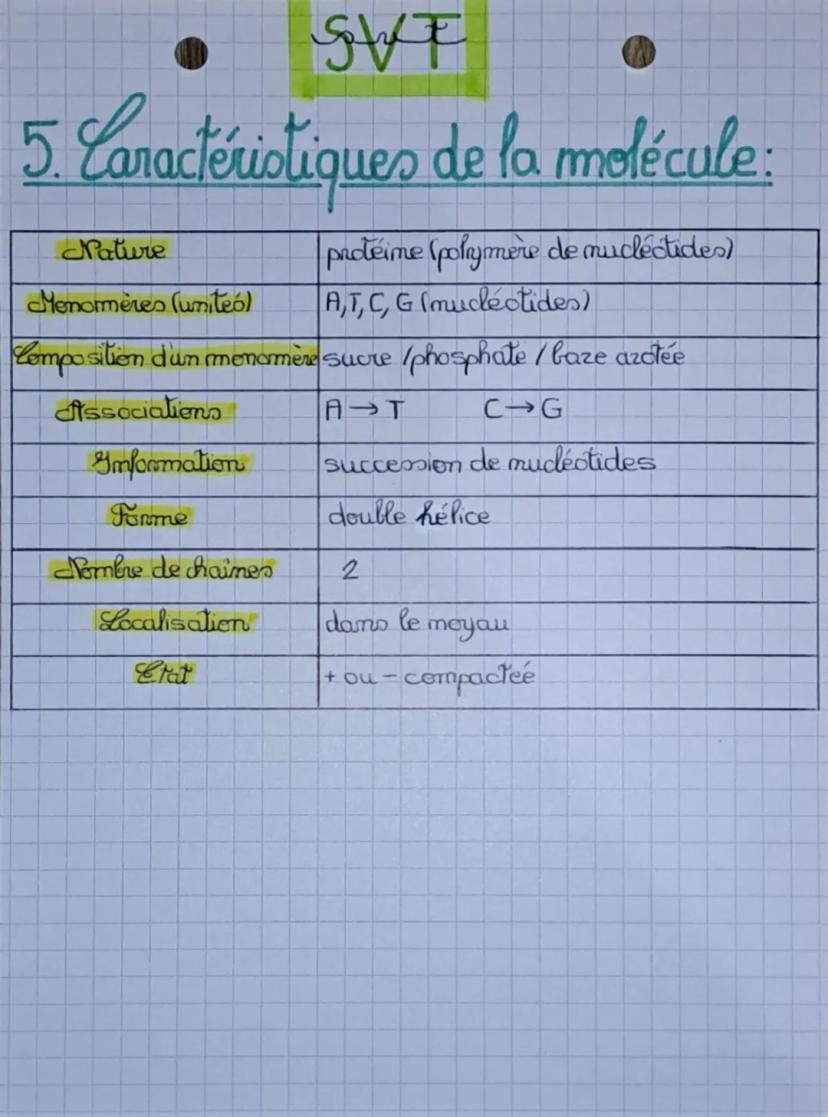 SVT
5. Caractéristiques de la molécule:
Nature protéine (polymère de nucléotides)
Monomères (unités) A, T, C, G (nucléotides)
Composition d'un monomère sucre / phosphate / baze azotée
Associations A → T C → G
Information succession de nucléotides
Forme double hélice
Nombre de chaînes 2
Localisation dans le noyau
Etat + ou - compacteé